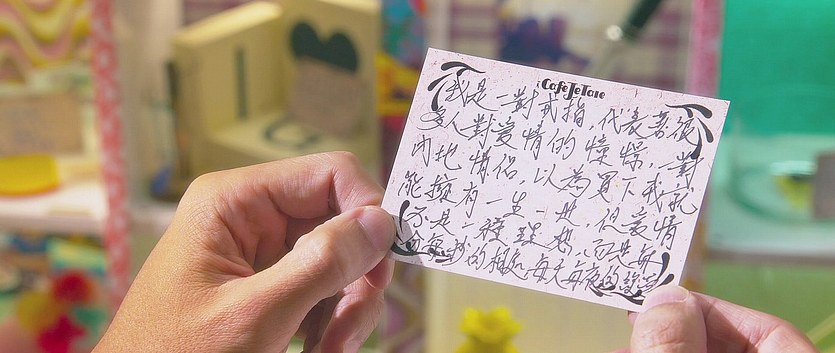 iCafeJeTaie
我是一對戒指,代表著很
多人對愛情的憧憬,一對
內地情侶,以為買下我就
能擁有一生一世,但愛情
不是一種理想,而是每
分每秒的相處,每天每夜的